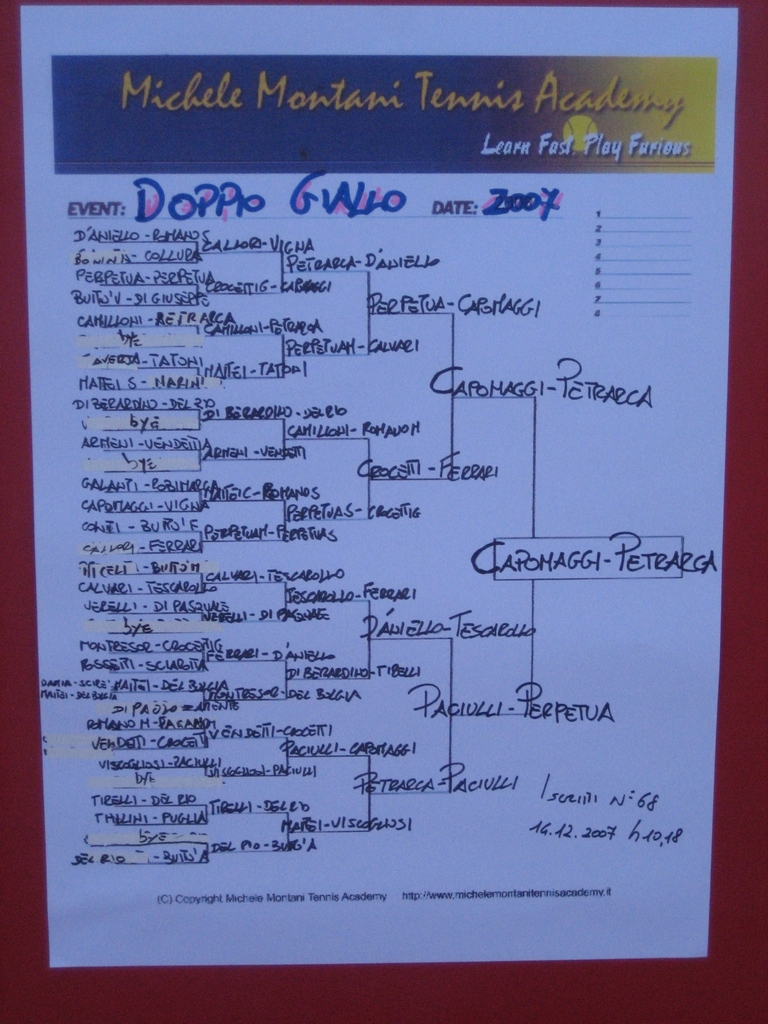 Michele Montani Tennis Academy
Learn Fast, Play Furious
EVENT: DOPPIO GIALLO DATE: 2007
1
2
3
4
5
6
7
8
D'ANIELLO - ROMANOS
COLLURA
PERPETUA - PERPETUA
BUITO'V - DI GIUSEPPE
CAMILLONI - PETRARCA
bye
TAVERJA - TATONI
MATTEI S - MARINI
DI BERARDINO - DEL RIO
bye
ARMENI - VENDETTA
bye
GALANTI - ROBIMARGA
CAPOMAGGI - VIGNA
CONTI - BUITO'F
CALLORI - FERRARI
MICELI - BUITO'M
CALVARI - TESCAROLLO
VERELLI - DI PASQUALE
bye
MONTRESOR - CROCETTIG
ROSSETTI - SCIAROTTA
DAMIA - SCIRE'
MATTEI - DEL BUGLIA
MATTEI - DEL BUGLIA
DI PAOLO = ATTENTE
ROMANO M - PAGANINI
VENDETTI - CROCETTI
VISCOGLIOSI - PACIULLI
bye
TIRELLI - DEL RIO
TMILINI - PUGLIA
bye
DEL RIO - BUITO'A
CALLORI - VIGNA
CROCETTIG - CAPOMAGGI
CAMILLONI - PETRARCA
MATTEI - TATONI
DI BERARDINO - DEL RIO
ARMENI - VENDETTI
MATTEI C - ROMANOS
PERPETUAM - PERPETUAS
CALVARI - TESCAROLLO
VERELLI - DI PASQUALE
FERRARI - D'ANIELLO
MONTRESOR - DEL BUGLIA
VENDETTI - CROCETTI
VISCOGLIOSI - PACIULLI
TIRELLI - DEL RIO
DEL RIO - BUITO'A
PETRARCA - D'ANIELLO
PERPETUAM - CALVARI
CAMILLONI - ROMANO M
PERPETUAS - CROCETTIG
TESCAROLLO - FERRARI
DI BERARDINO - TIRELLI
PACIULLI - CAPOMAGGI
MATTEI - VISCOGLIOSI
PERPETUA - CAPOMAGGI
CROCETTI - FERRARI
D'ANIELLO - TESCAROLLO
PETRARCA - PACIULLI
CAPOMAGGI - PETRARCA
PACIULLI - PERPETUA
CAPOMAGGI - PETRARCA
Iscritti N° 68
14.12.2007 h 10,18
(C) Copyright Michele Montani Tennis Academy http://www.michelemontanitennisacademy.it